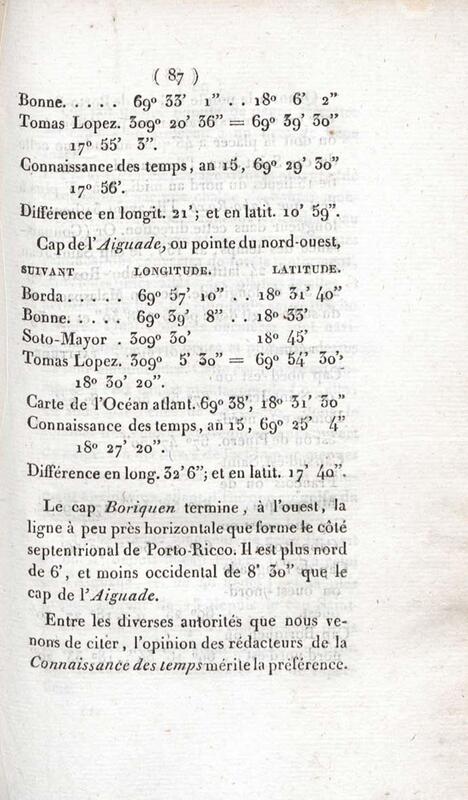 ( 87 )
Bonne. . . . . 69° 33' 1" . . 18° 6' 2"
Tomas Lopez. 309° 20' 36" = 69° 39' 30"
17° 55' 3".
Connaissance des temps, an 15, 69° 29' 30"
17° 56'.
Différence en longit. 21'; et en latit. 10' 59".
Cap de l'Aiguade, ou pointe du nord-ouest,
SUIVANT LONGITUDE. LATITUDE.
Borda . . . . . 69° 57' 10" . . 18° 31' 40"
Bonne. . . . . 69° 39' 8" . . 18° 33'
Soto-Mayor . 309° 30' 18° 45'
Tomas Lopez. 309° 5' 30" = 69° 54' 30"
18° 30' 20".
Carte de l'Océan atlant. 69° 38', 18° 31' 30"
Connaissance des temps, an 15, 69° 25' 4"
18° 27' 20".
Différence en long. 32' 6"; et en latit. 17' 40".
Le cap Boriquen termine, à l'ouest, la
ligne à peu près horizontale que forme le côté
septentrional de Porto-Ricco. Il est plus nord
de 6', et moins occidental de 8' 30" que le
cap de l'Aiguade.
Entre les diverses autorités que nous ve-
nons de citer, l'opinion des rédacteurs de la
Connaissance des temps mérite la préférence.